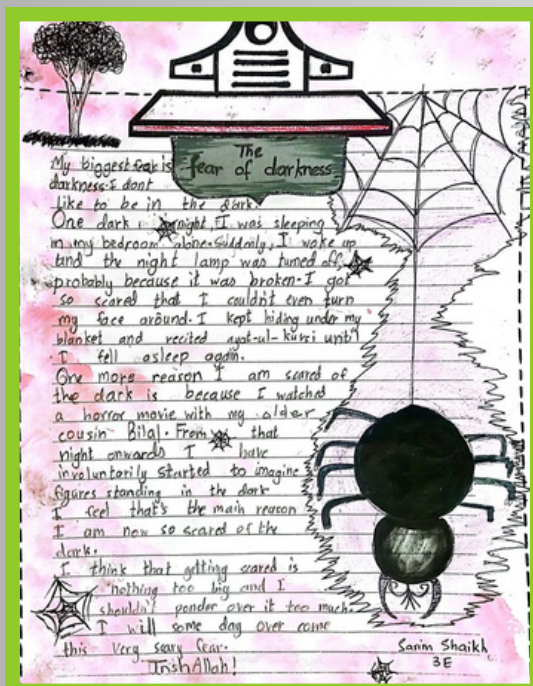 The
fear of darkness
My biggest fear is
darkness. I dont
like to be in the dark.
One dark night, I was sleeping
in my bedroom alone. Suddenly, I woke up
and the night lamp was turned off,
probably because it was broken. I got
so scared that I couldn't even turn
my face around. I kept hiding under my
blanket and recited ayat-ul-kursi until
I fell asleep again.
One more reason I am scared of
the dark is because I watched
a horror movie with my older
cousin Bilal. From that
night onwards I have
involuntarily started to imagine
figures standing in the dark
I feel that's the main reason
I am now so scared of the
dark.
I think that getting scared is
nothing too big and I
shouldn't ponder over it too much.
I will some day over come
this very scary fear.
InshAllah!
Sarim Shaikh
3E